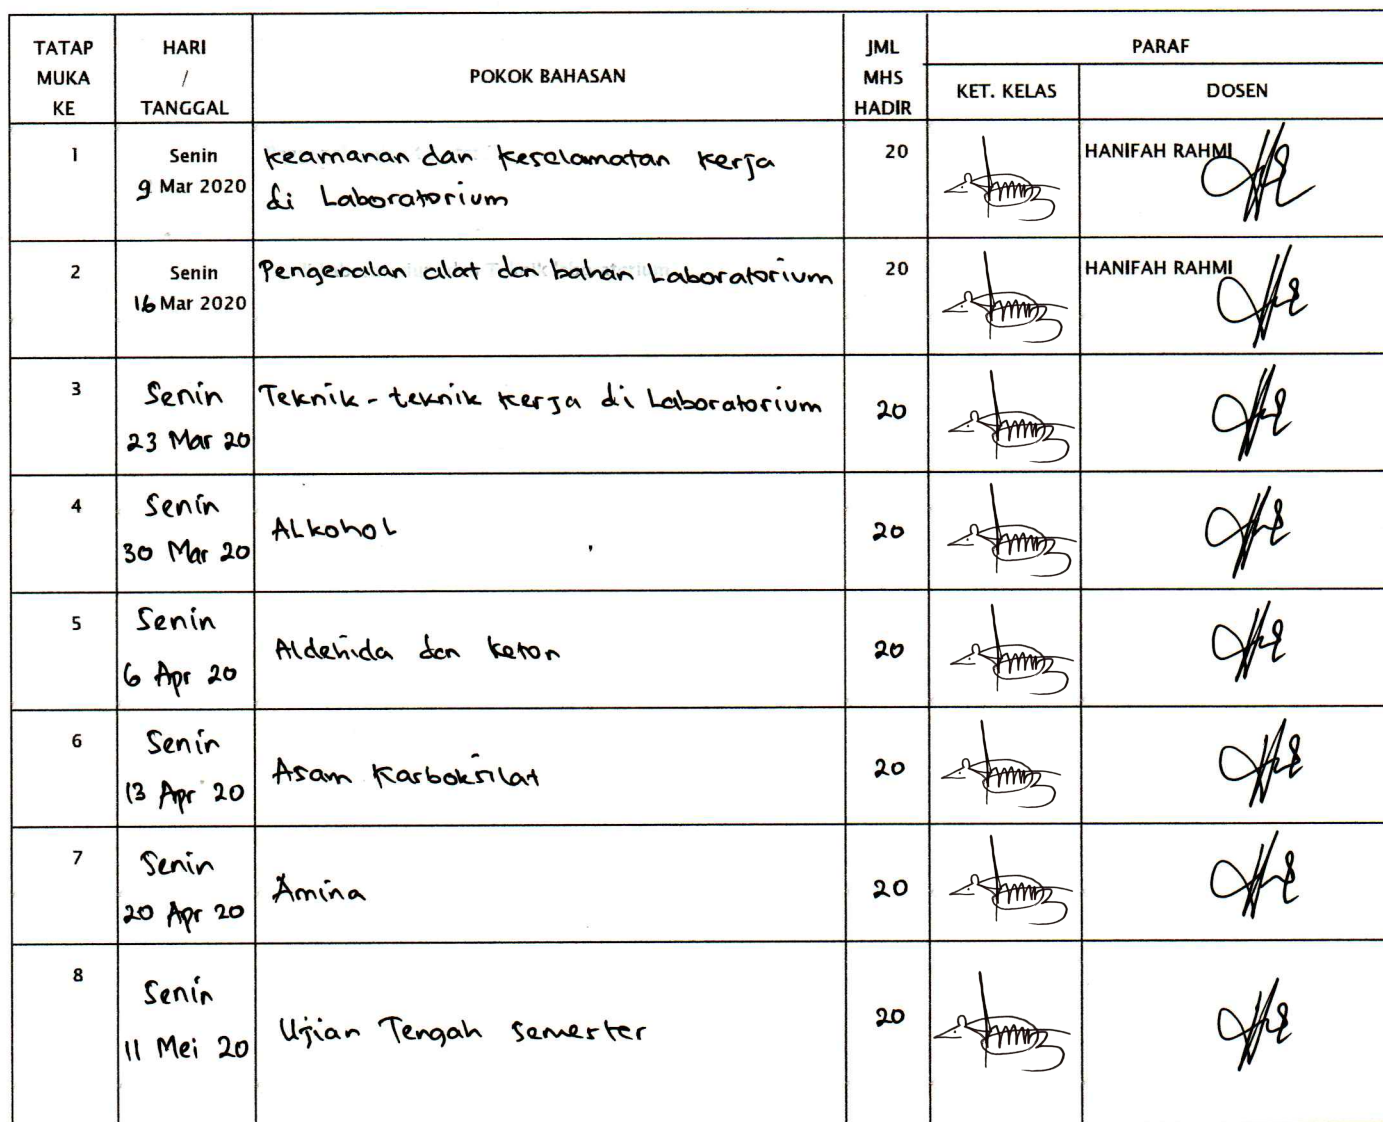 TATAP MUKA KE
HARI / TANGGAL
POKOK BAHASAN
JML MHS HADIR
PARAF
KET. KELAS
DOSEN
1
Senin
9 Mar 2020
Keamanan dan Keselamatan Kerja
di Laboratorium
20
HANIFAH RAHMI
2
Senin
16 Mar 2020
Pengenalan alat dan bahan Laboratorium
20
HANIFAH RAHMI
3
Senin
23 Mar 20
Teknik-teknik Kerja di Laboratorium
20
4
Senin
30 Mar 20
Alkohol
20
5
Senin
6 Apr 20
Aldehida dan keton
20
6
Senin
13 Apr 20
Asam Karboksilat
20
7
Senin
20 Apr 20
Amina
20
8
Senin
11 Mei 20
Ujian Tengah Semester
20